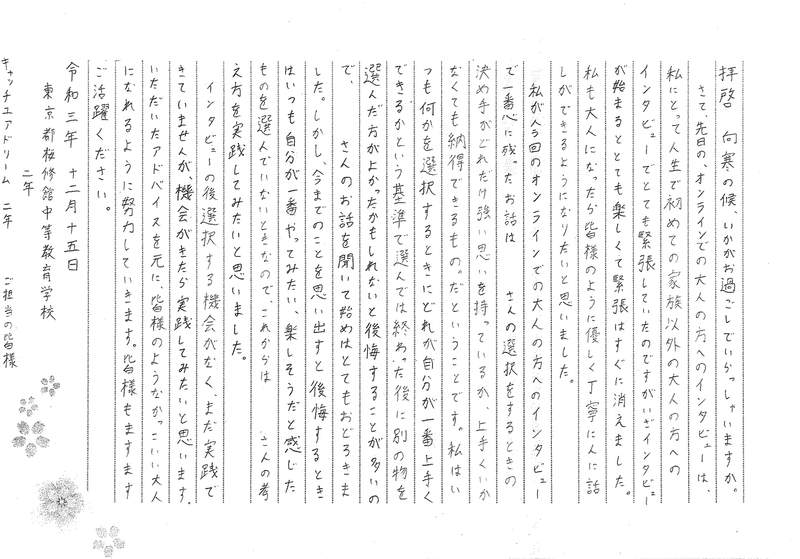 拝啓　向寒の候、いかがお過ごしでいらっしゃいますか。
さて、先日の、オンラインでの大人の方へのインタビューは、
私にとって人生で初めての家族以外の大人の方への
インタビューでとても緊張していたのですがいざインタビュー
が始まるととても楽しくて緊張はすぐに消えました。
私も大人になったら皆様のように優しく丁寧に人に話
しができるようになりたいと思いました。
私が今回のオンラインでの大人の方へのインタビュー
で一番心に残ったお話は　　さんの選択をするときの
決め手がどれだけ強い思いを持っているか、上手くいか
なくても納得できるもの。だということです。私はい
つも何かを選択するときにどれが自分が一番上手く
できるかという基準で選んでは終わった後に別の物を
選んだ方がよかったかもしれないと後悔することが多いの
で、　　さんのお話を聞いて始めはとてもおどろきま
した。しかし、今までのことを思い出すと後悔するとき
はいつも自分が一番やってみたい楽しそうだと感じた
ものを選んでいないときなので、これからは　　さんの考
え方を実践してみたいと思いました。
インタビューの後選択する機会がなく、まだ実践で
きていませんが、機会がきたら実践してみたいと思います。
いただいたアドバイスを元に、皆様のようなかっこいい大人
になれるように努力していきます。皆様もますます
ご活躍ください。
令和三年　十二月十五日
東京都桜修館中等教育学校
二年
キャッチユアドリーム　二年　ご担当の皆様